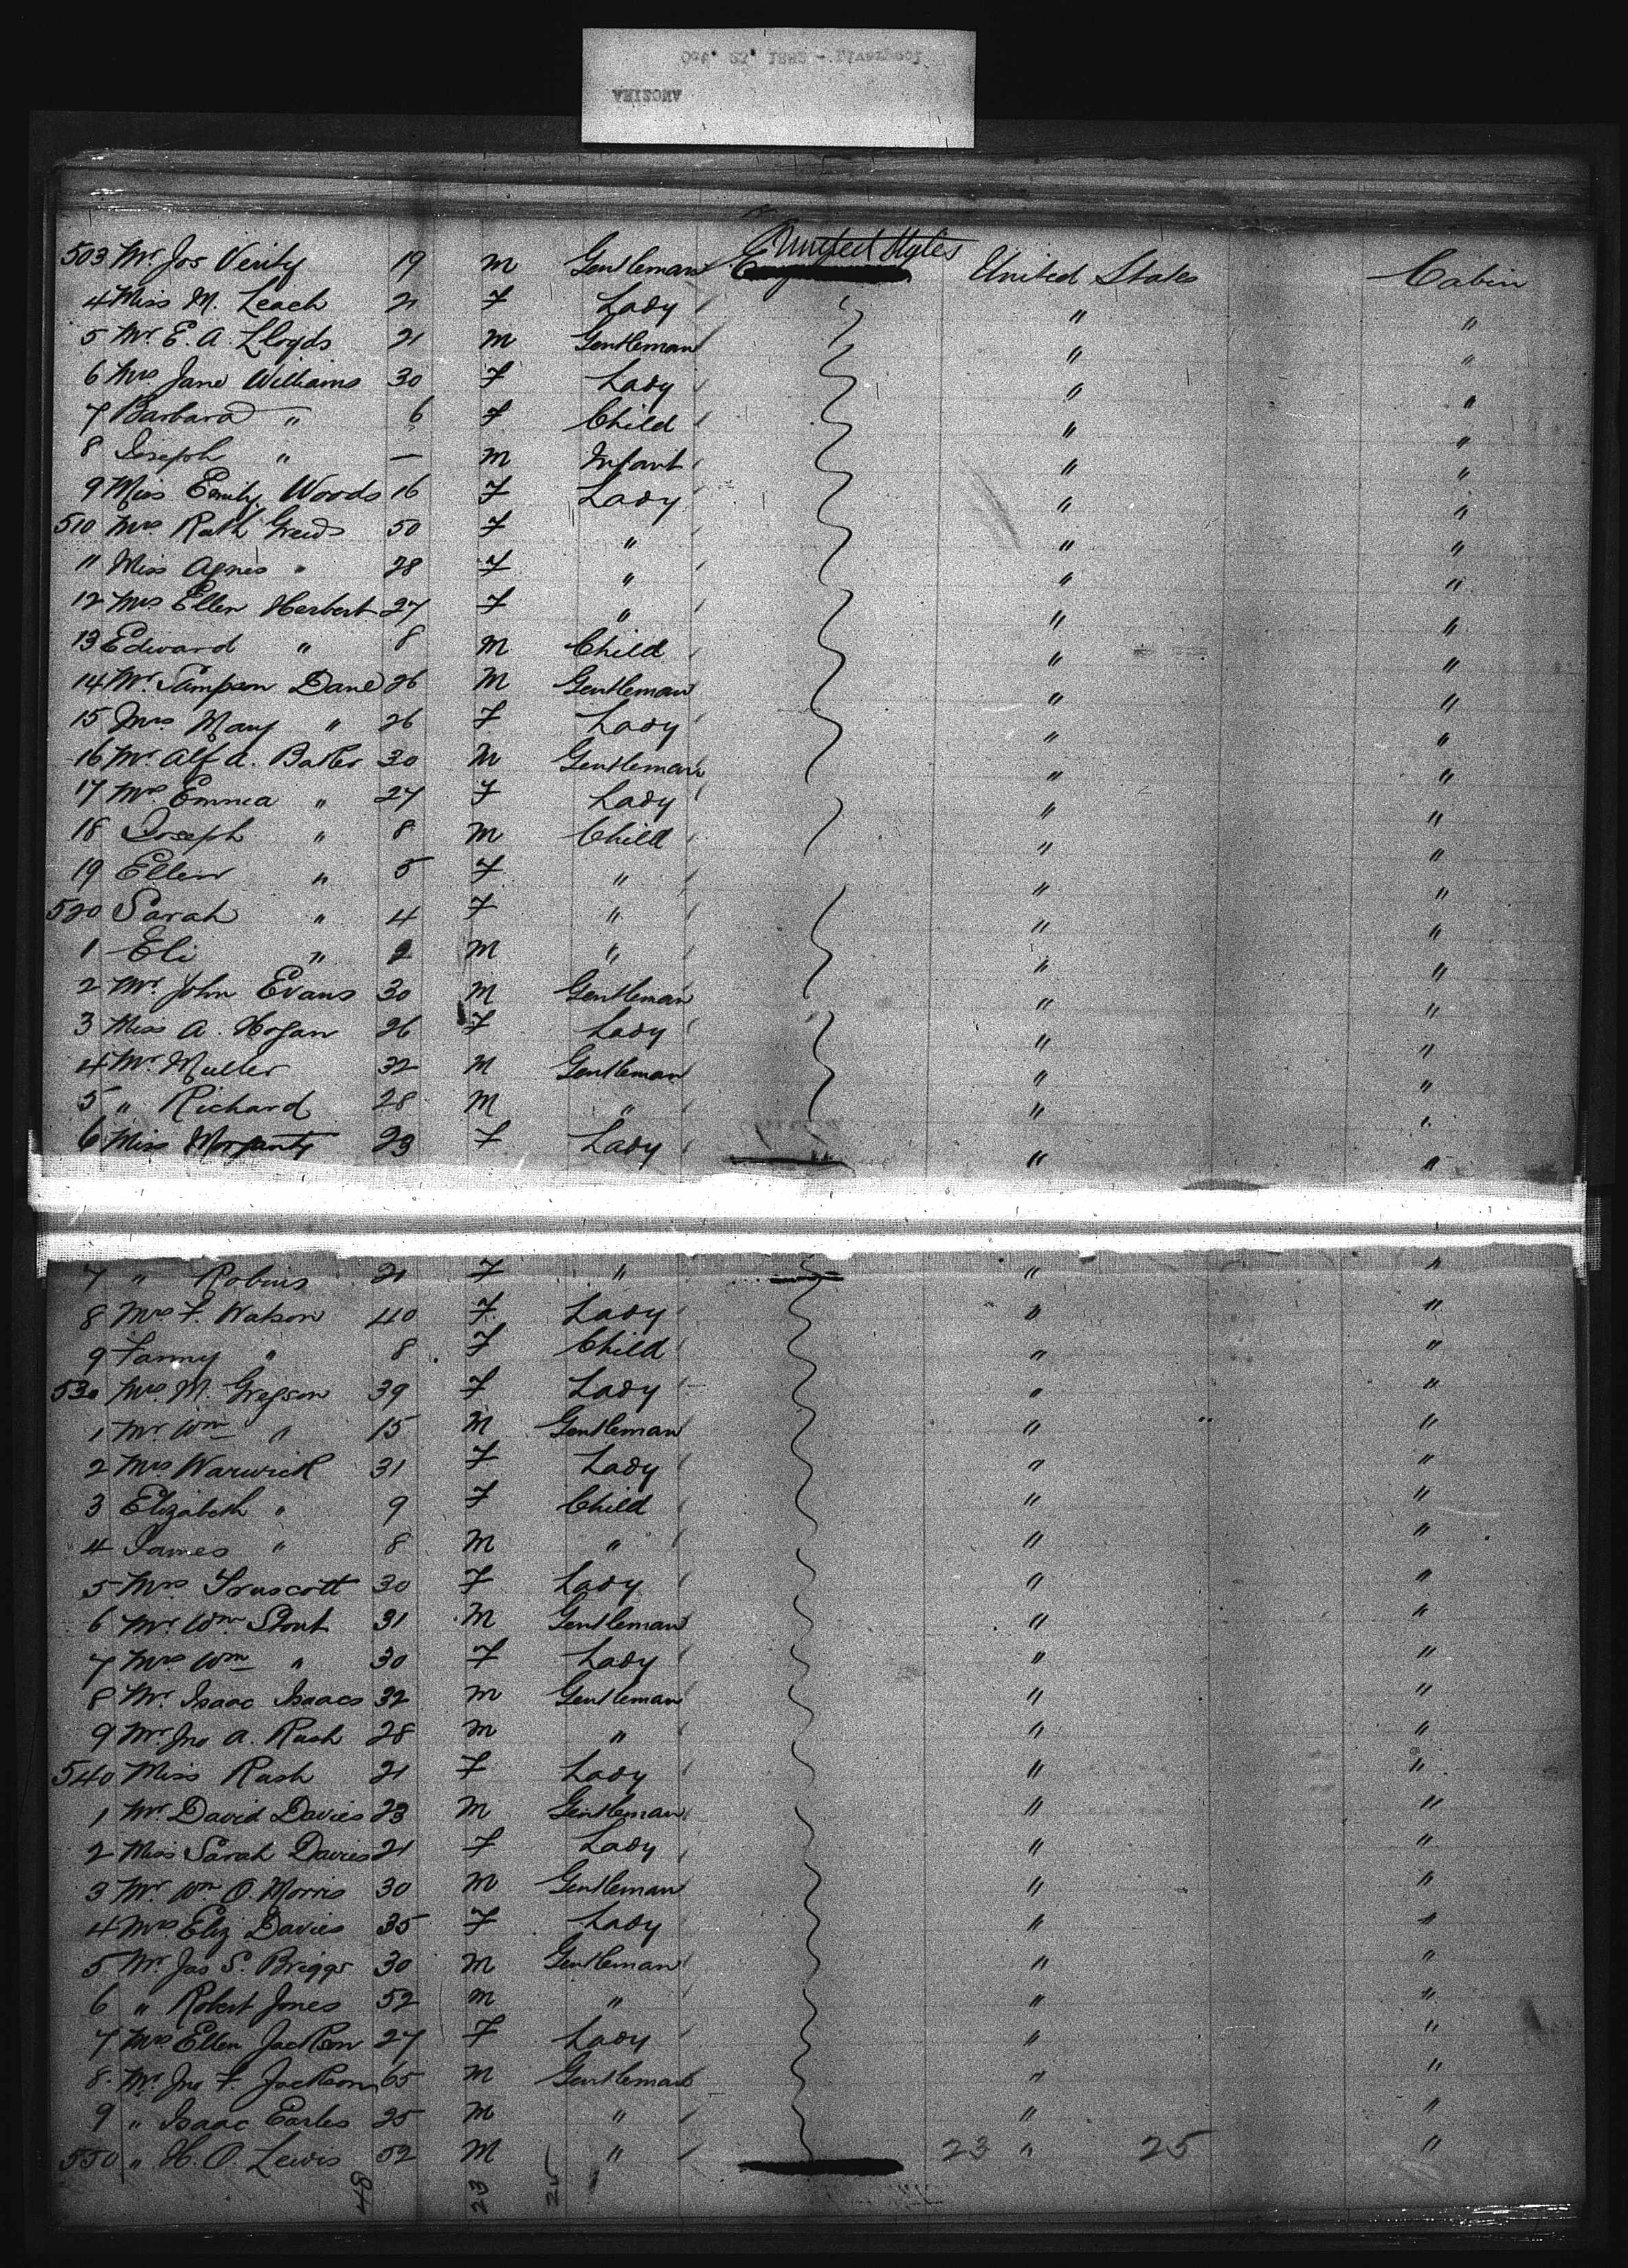 Oct. 23, 1882 - Liverpool
ARIZONA
United States
503 Mr. Jos Verity 19 M Gentleman United States Cabin
4 Miss M. Leach 21 F Lady " "
5 Mr. E. A. Lloyds 21 M Gentleman " "
6 Mrs Jane Williams 30 F Lady " "
7 Barbara " 6 F Child " "
8 Joseph " — M Infant " "
9 Miss Emily Woods 16 F Lady " "
510 Mrs Ruth 50 F " " "
11 Miss Agnes " 28 F " " "
12 Mrs Ellen Herbert 27 F " " "
13 Edward " 8 M Child " "
14 Mr. Sampson Dane 26 M Gentleman " "
15 Mrs Mary " 26 F Lady " "
16 Mr. Alf d. 30 M Gentleman " "
17 Mrs Emma " 27 F Lady " "
18 Joseph " 8 M Child " "
19 Ellen " 5 F " " "
520 Sarah " 4 F " " "
1 Eli " 2 M " " "
2 Mr. John Evans 30 M Gentleman " "
3 Miss A. Hogan 26 F Lady " "
4 Mr. Muller 32 M Gentleman " "
5 " Richard 28 M " " "
6 Miss 23 F Lady " "
7 " Robins 21 F " " "
8 Mrs F. Watson 40 F Lady " "
9 Fanny " 8 F Child " "
530 Mrs M. Gregson 39 F Lady " "
1 Mr. Wm " 15 M Gentleman " "
2 Mrs Warwick 31 F Lady " "
3 Elizabeth " 9 F Child " "
4 James " 8 M " " "
5 Mrs Truscott 30 F Lady " "
6 Mr. Wm. Stout 31 M Gentleman " "
7 Mrs Wm " 30 F Lady " "
8 Mr. Isaac Isaacs 32 M Gentleman " "
9 Mr. Jno A. Rush 28 M " " "
540 Miss Rush 21 F Lady " "
1 Mr. David Davies 23 M Gentleman " "
2 Miss Sarah Davies 21 F Lady " "
3 Mr. Wm. O. Morris 30 M Gentleman " "
4 Mrs Eliz Davies 35 F Lady " "
5 Mr. Jas S. Briggs 30 M Gentleman " "
6 " Robert Jones 52 M " " "
7 Mrs Ellen Jackson 27 F Lady " "
8 Mr. Jno F. Jackson 65 M Gentleman " "
9 " Isaac Earles 25 M " " "
550 " H. O. Lewis 52 M " 23 " 25 "
48 23 25